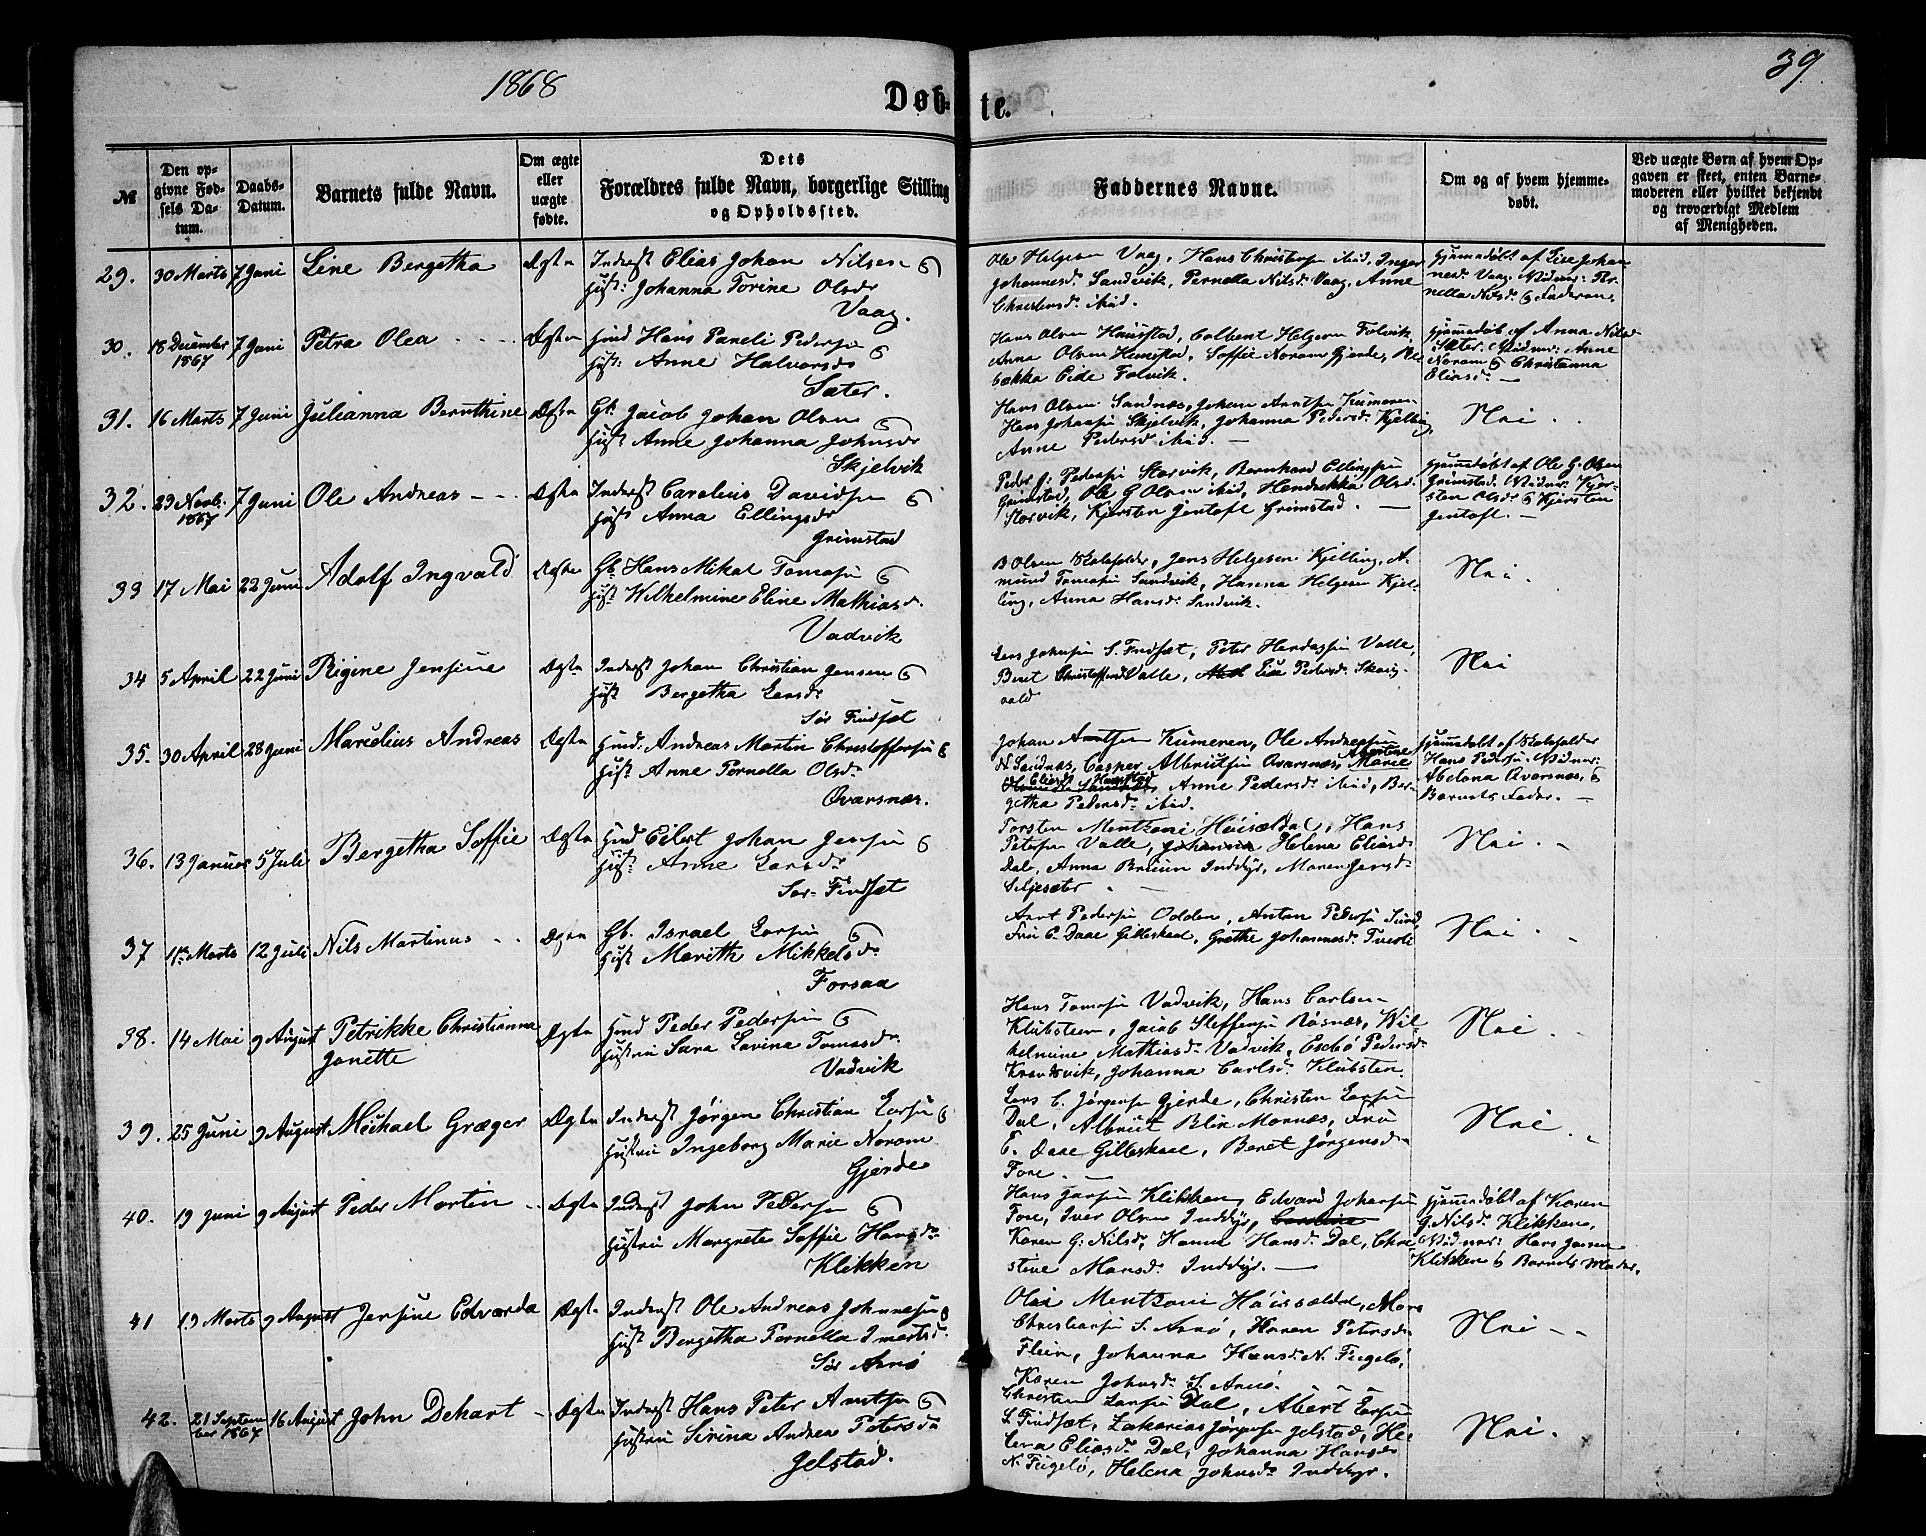 1868
39.
Døbte.
№
Den opgivne Fødsels Datum.
Daabs-Datum.
Barnets fulde Navn.
Om ægte eller uægte fødte.
Dets Forældres fulde Navn, borgerlige Stilling og Opholdssted.
Faddernes Navne.
Om og af hvem hjemmedøbt.
Ved uægte Børn af hvem Opgaven er skeet, enten Barnemoderen eller hvilket bekjendt og troværdigt Medlem af Menigheden.
29. 30 Marts 7 Juni Line Bergetha Ægte Inderst Elias Johan Nilsen &
Hust: Johanna Torine Olsdr
Vaag.
Ole Helgesen Vaag, Hans Christophersen ibid, Inger
Johannesd. Sandvik, Pernella Nilsd. Vaag, Anne
Christensd. ibid.
30. 18 December 1867 7 Juni Petra Olea Ægte Huusm Hans Paneli Pedersen &
Hust: Anne Halvorsdr
Sæter.
Hans Olsen Haugstad, Colbent Helgesen Folvik,
Anna Olsen Haugstad, Soffie Norum Gjerde, Re-
bækka Eide Folvik.
31. 16 Marts 7 Juni Julianna Bernthine Ægte Gb. Jacob Johan Olsen &
Hust Anne Johanna Johnsdr
Skjelvik
Hans Olsen Sandnæs, Johan Arntsen Kumeren
Hans Johansen Skjelvik, Johanna Pedersd. Kjelling,
Anne Pedersd ibid. —
Nei.
32. 23 Novb. 1867 7 Juni Ole Andreas Ægte Inderst Carelius Davidsen &
Hust Anna Ellingsdr
Grimstad
Peder J. Pedersen Storvik, Bernhard Ellingsen
Grimstad, Ole G Olsen ibid, Hendrikka Olsd.
Storvik, Kjersten Jentoft Grimstad. —
hjemmedøbt af Ole G. Olsen
Grimstad. Vidner: Kjer-
sten Olsd. & Kjersten
Jentoft. —
33 17 Mai 22 Juni Adolf Ingvald Ægte Gb. Hans Mikal Tomasen &
Hust Wilhelmine Eline Mathiasd.
Vadvik
B Olsen Skoleholder, Jens Helgesen Kjelling, A-
mund Tomasen Sandvik, Hanna Helgesen Kjel-
ling, Anna Hansd. Sandvik.
Nei.
34 5 April 22 Juni Regine Jensine Ægte Inderst Johan Christian Jensen &
Hust Bergetha Larsdr
Sør Findset
Lars Johnsen S. Findset, Peter Valle,
Beret Christoffersd Valle, Pedersd.
Nei
35. 30 April 28 Juni Marselius Andreas Ægte Huusm. Andreas Martin Christoffersen &
Hust Anne Pernella Olsd.
Qvarsnæs.
Johan Arntsen Kumeren, Ole Andreassen
Sandnæs, Casper Albrigtsen Qvarsnæs, Marie
Anne Pedersd. ibid, Ber-
getha Pedersd. ibid.
hjemmedøbt af Skoleholder
Hans Pedersen. Vidner:
Abelona Qvarsnæs, &
Barnets Fader. —
36. 13 Januar 5 Juli Bergetha Soffie Ægte Huusm Eilert Johan Jensen &
Hust. Anne Larsdr
Sør-Findset
Torsten Mentzoni Hans
Petersen Valle, Helena Eliasd.
Dal, Anna Bruun Inddyr, Maren Jensd.
Seljesæter
Nei.
37 Marts 12 Juli Nils Martinus Ægte Gb. Israel Larsen &
Hust Marith Mikkelsdr
Forsaa
Arnt Pedersen Odden, Anton Pedersen Sund,
Frü C. Daae Gilleskaal, Grethe Johannesd.
Nei.
38. 14 Mai 9 August Petrikke Christianna Janette Ægte Huusm Peder Pedersen &
Hustru Sara Lovina Tomasdr
Vadvik
Hans Tomasen Vadvik, Hans Carlsen
Klubsteen, Jacob Steffensen Røsnæs, Wil-
helmine Mathiasd. Vadvik, Pedersd.
Johanna Carlsd. Klubsten.
Nei.
39. 25 Juni 9 August Michael Græger Ægte Inderst Jørgen Christian Larsen &
Hustru Ingeborg Marie Norum
Gjerde
Lars C. Jørgensen Gjerde, Christen Larsen
Dal, Albrigt Blix Mornæs, Frü
C. Daae Gilleskaal, Beret Jørgensd.
Fore. —
Nei.
40. 19 Juni 9 August Peder Martin Ægte Inderst John Pedersen &
Hustru Margrete Soffie Hansdr
Klikken
Hans Jensen Klikken, Edvard Johansen
Fore, Iver Olsen Inddyr,
Karen G. Nilsd., Hanna Hansd. Dal, Chri-
stine Hansd. Inddyr. —
hjemmedøbt af Karen
G. Nilsd. Klikken,
Vidner: Hans Jensen
Klikken & Barnets Moder.
41 19 Marts 9 August Jensine Edvarda Ægte Inderst Ole Andreas Johnsen &
Hust Bergetha Pernella
Sør Arnø
Olai Mentzoni
Christiansen S. Arnø, Karen Petersdr
Flein, Johanna Hansd. N. Fugelø,
Karen Johnsd. S. Arnø.
Nei
42. 21 September 1867 16 August John Dehart Ægte Inderst Hans Peter Arntsen &
Hustru Sirina Andrea Petersdr
Gelstad.
Christen Larsen Dal, Albert Larsen
S. Findset, Zakarias Jørgensen Gelstad, He-
lena Eliasd. Dal, Johanna Hansdr
N. Fugelø, Helena Johnsdr Inddyr.
Nei.